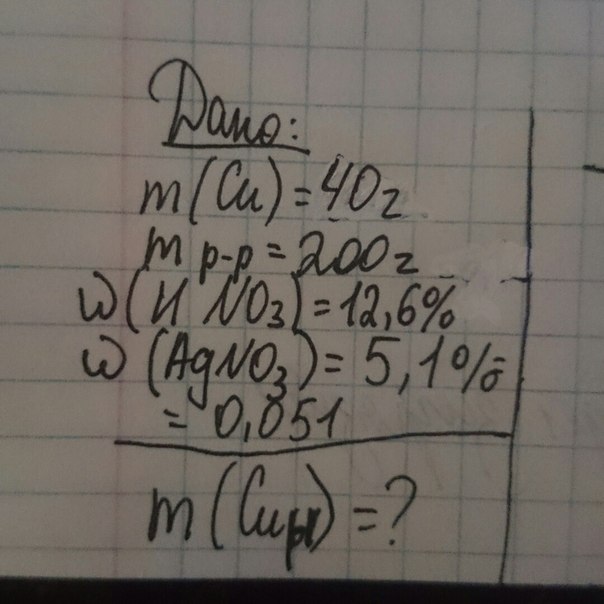 Дано:
m(Cu)=40г
m р-р=200г
W(HNO₃)=12,6%
W(AgNO₃)=5,1%=
=0,051
m(Cuрн)=?